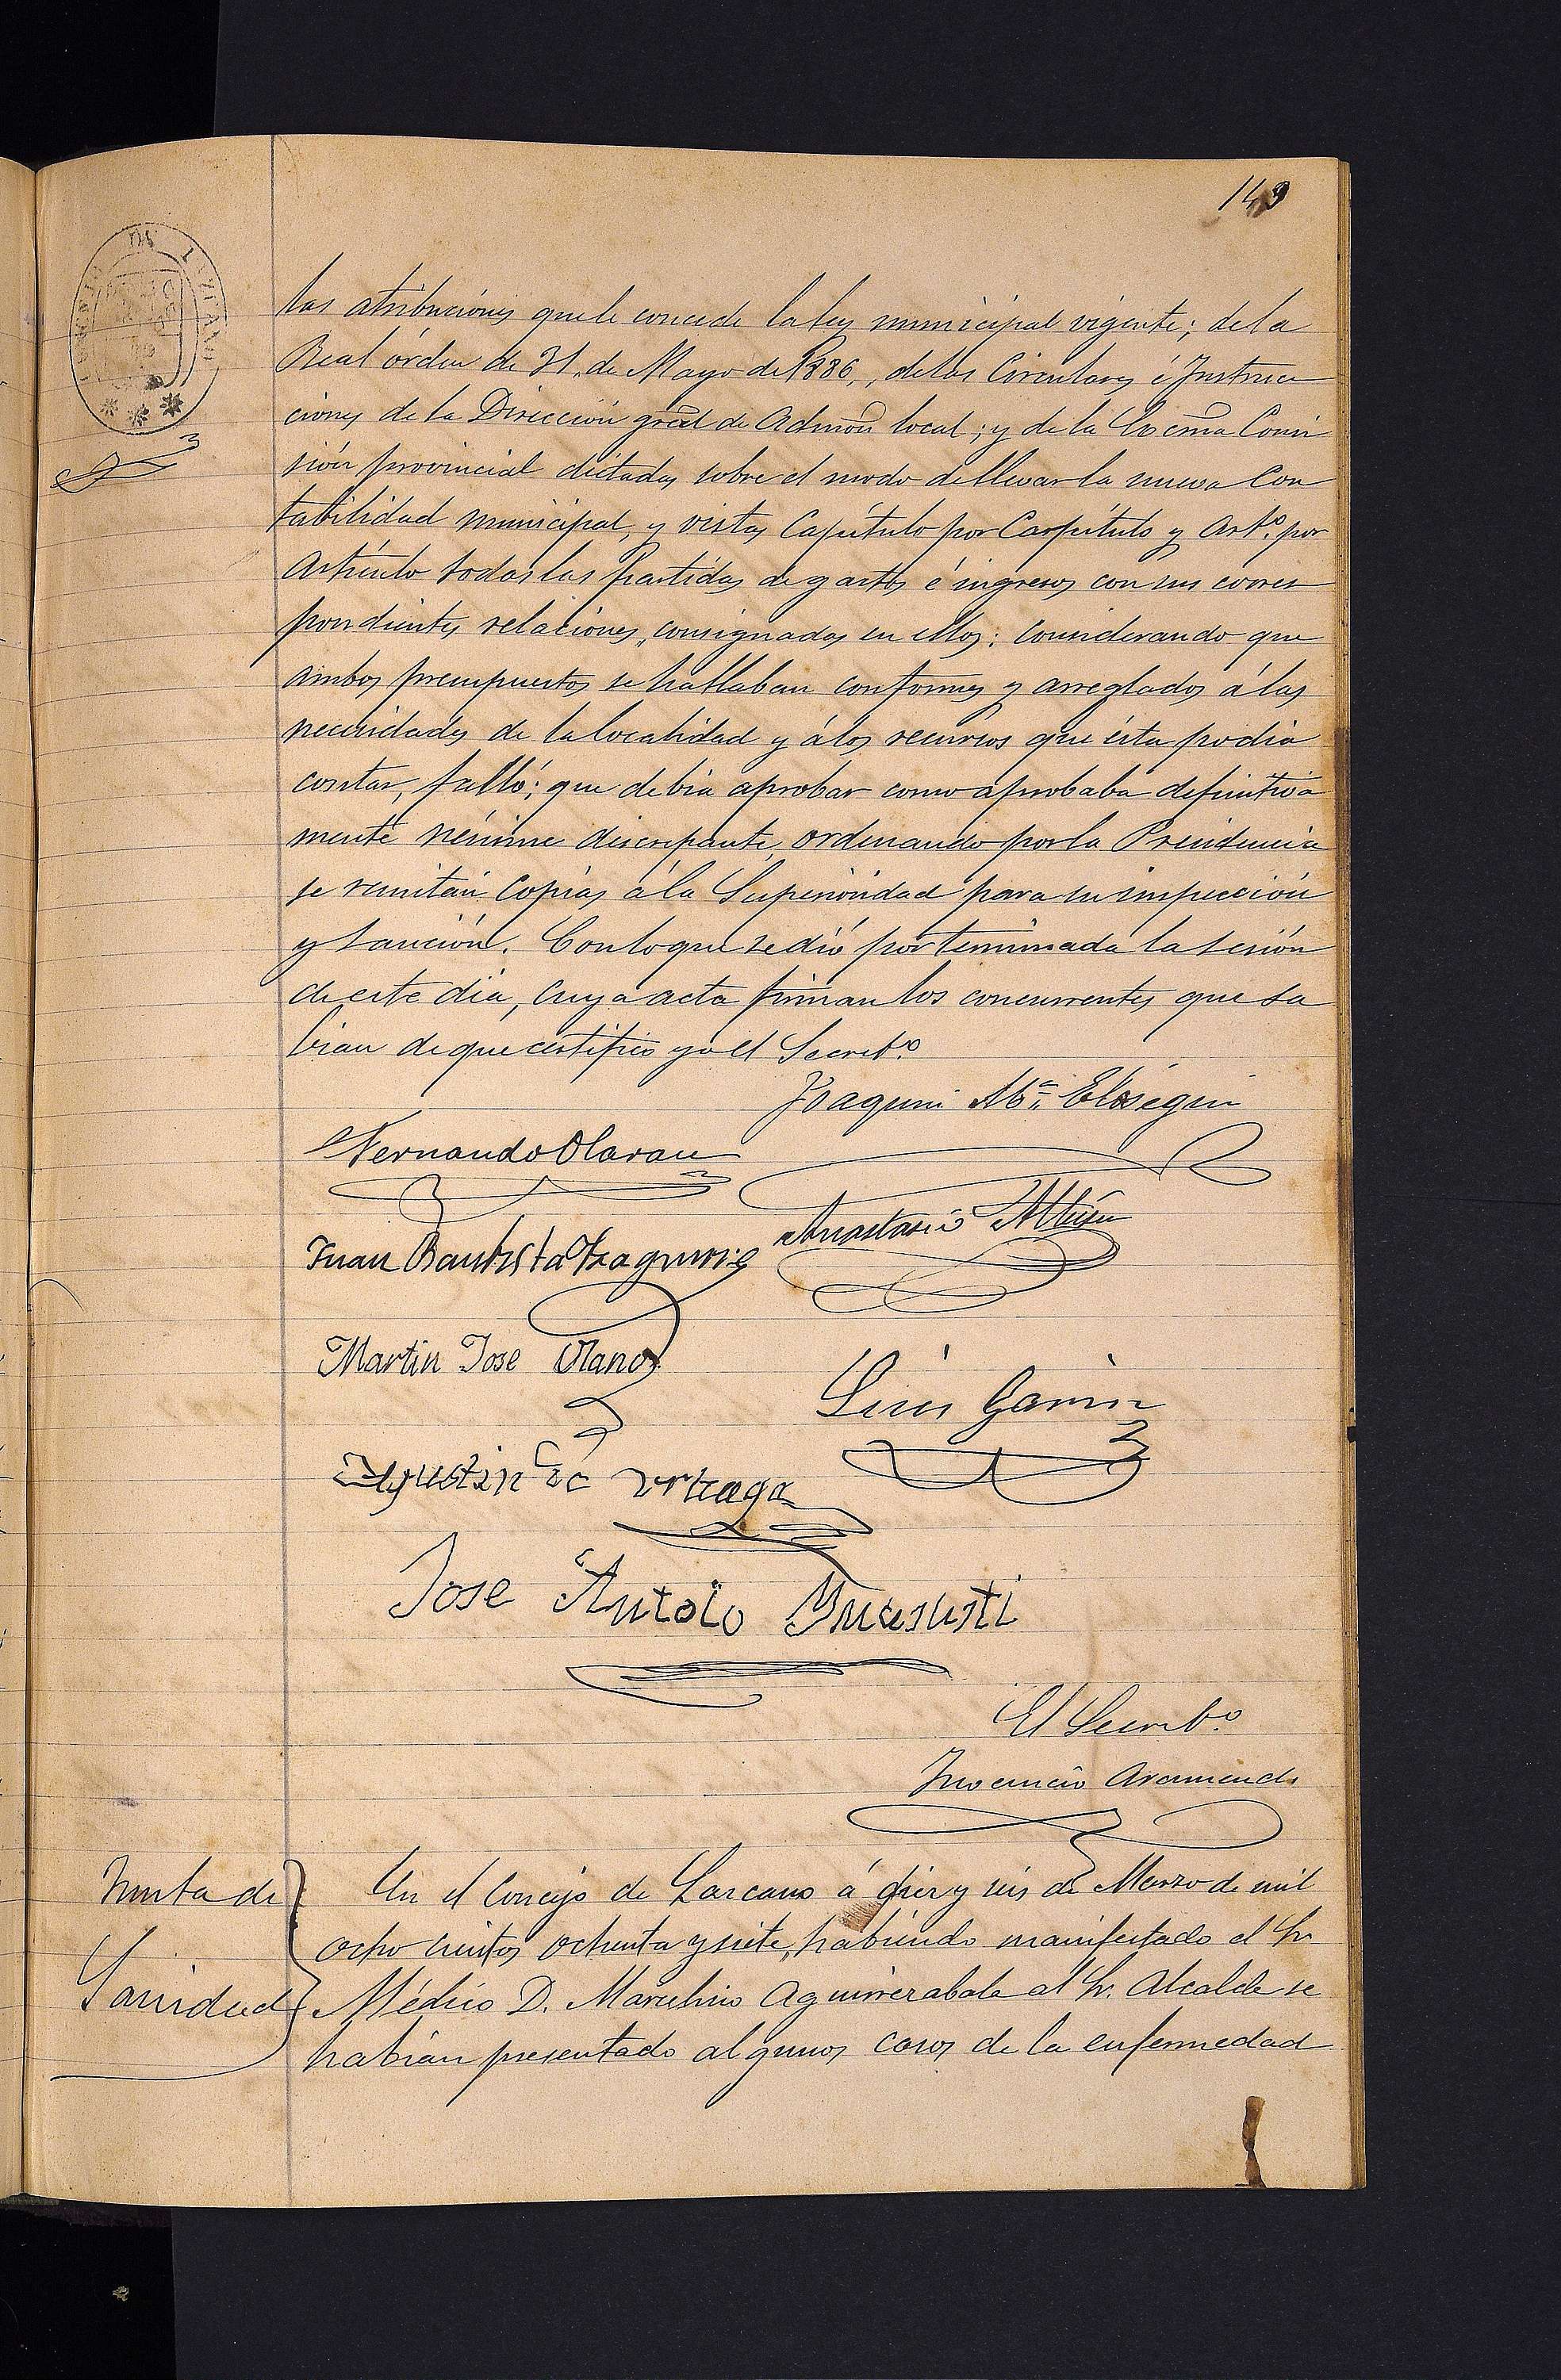 149
las atribuciónes que le concede la ley municipal vigente; de la
Real órden de 31, de Mayo de 1886,, de las Circulares é Instruc
ciones de la Dirección gral de Admón local; y de la Excma Comi
sión provincial dictadas sobre el modo de llevar la nueva Con
tabilidad municipal, y vistas Capítulo por Capítulo y Artº. por
Artículo todas las Partidas de gastos é ingresos con sus corres
pondientes relaciones, consignadas en ellos: considerando que
ambos presupuestos se hallaban conformes y arreglados á las
necesidades de la localidad y á los recursos que ésta podia
contar, falló; que debia aprobar como aprobaba definitiva
mente némine discrepante, ordenando por la Presidencia
se remitan copias á la Superioridad para su inspección
y sanción. Con lo que se dió por terminada la sesión
de este dia, cuya acta firman los concurrentes que sa
bian de que certifico yo el Secretº.
Joaquin Mª. Elósegui
Fernando Olaran
Anastasio Albisu
Juan Bautista Yzaguirre
Martin Jose Olano
Luis Garin
Agustin de Urteaga
Jose Antoio Yncausti
El Secretº.
Inocencio Aramendi
Junta de
Sanidad
En el Concejo de Lazcano á diez y seis de Marzo de mil
ocho cientos ochenta y siete, habiendo manifestado el Sr.
Médico D. Marcelino Aguirrezabala al Sr. Alcalde se
habian presentado algunos casos de la enfermedad